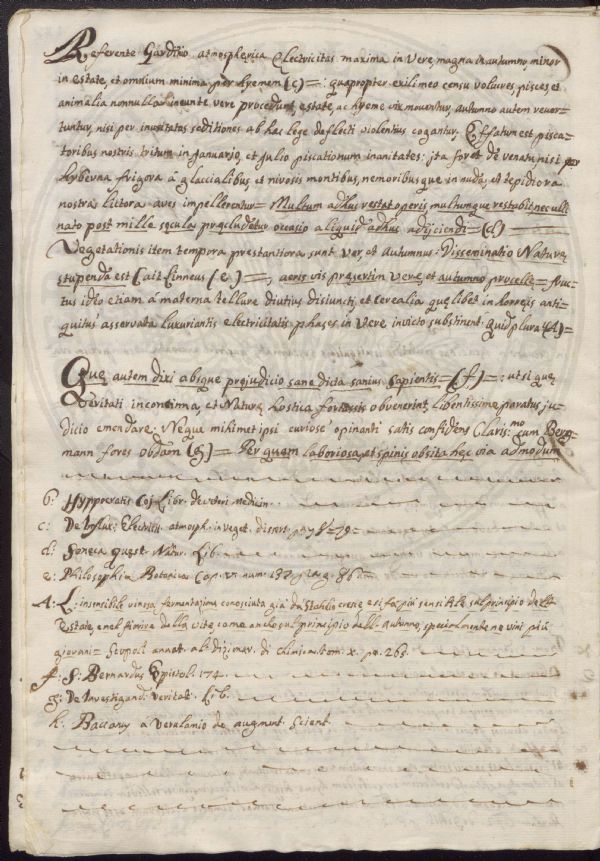 Referente Gardinio atmospherica Electricitas maxima in Vere, magna in autumno, minor
in estate, et omnium minima per hyemem (c) =: quapropter exili meo censu volucres, pisces, et
animalia nonnulla ineunte vere procedunt, estate, ac hyeme vix moventur, autumno autem rever=
tuntur, nisi per inusitatas seditiones ab hac lege deflecti violentius cogantur. Effatum est pisca=
toribus nostris tritum in Januarjo, et Julio piscationum inanitates: ita foret de venatu, nisi per
hyberna frigora á glaccialibus, et nivosis montibus, nemoribusque in nuda, et tepidiora
nostra littora aves impellerentur = Multum adhuc restat operis multumque restabit, nec ulli
nato post mille sęcula pręcludetur occasio aliquid adhuc adijciendi = (d)
Vegetationis item tempora prestantiora sunt Ver, et Autumnus: Disseminatio Naturę
stupenda est (ait Linneus (e) =, aeris vis pręsertim Vere, et autumno procellę = fruc=
tus idéo etiam á materna tellure diutius disiuncti, et cerealia quęlibet in horreis anti=
quitus asservata luxuriantis electricitatis phases in Vere invicto substinent: quid plura (A) =
Quę autem dixi absque pręjudicio sane dicta sanius sapientis = (f) =: ut si quę
Veritati incontima, et Naturę hostica fortassis obvenerint, libentissime paratus ju=
dicio emendare: Neque mihimet ipsi curiose opinanti satis confidens Claris:mo cum Berg=
mann fores obdam (g) = Per quem laboriosa, et spinis obsita hęc via admodum
b: Hyppocratis Coj Libr. de veteri medicin.
c: De influx: Electricit. atmosph. in veget. dissert. pag
d: Seneca quest. Natur. Lib.
e: Philosophia Botanica Cap. num. 132 pag. 86
A: L: insensibile vinosa fermentazione conosciuta giá da Stahlio cresce, e si fa piú sensibile sul principio dell'
Estate, e nel fiorire della vite, come anche sul principio dell' Autunno, specialmente ne vini piú
giovani = Scopoli annot. al dizionar. di chimica. tom. x. pa. 265.
f: S: Bernardus Epistol. 174.
g: De investigand. veritat. Lib.
h. Baccony a Verulamio de augment. Scient.